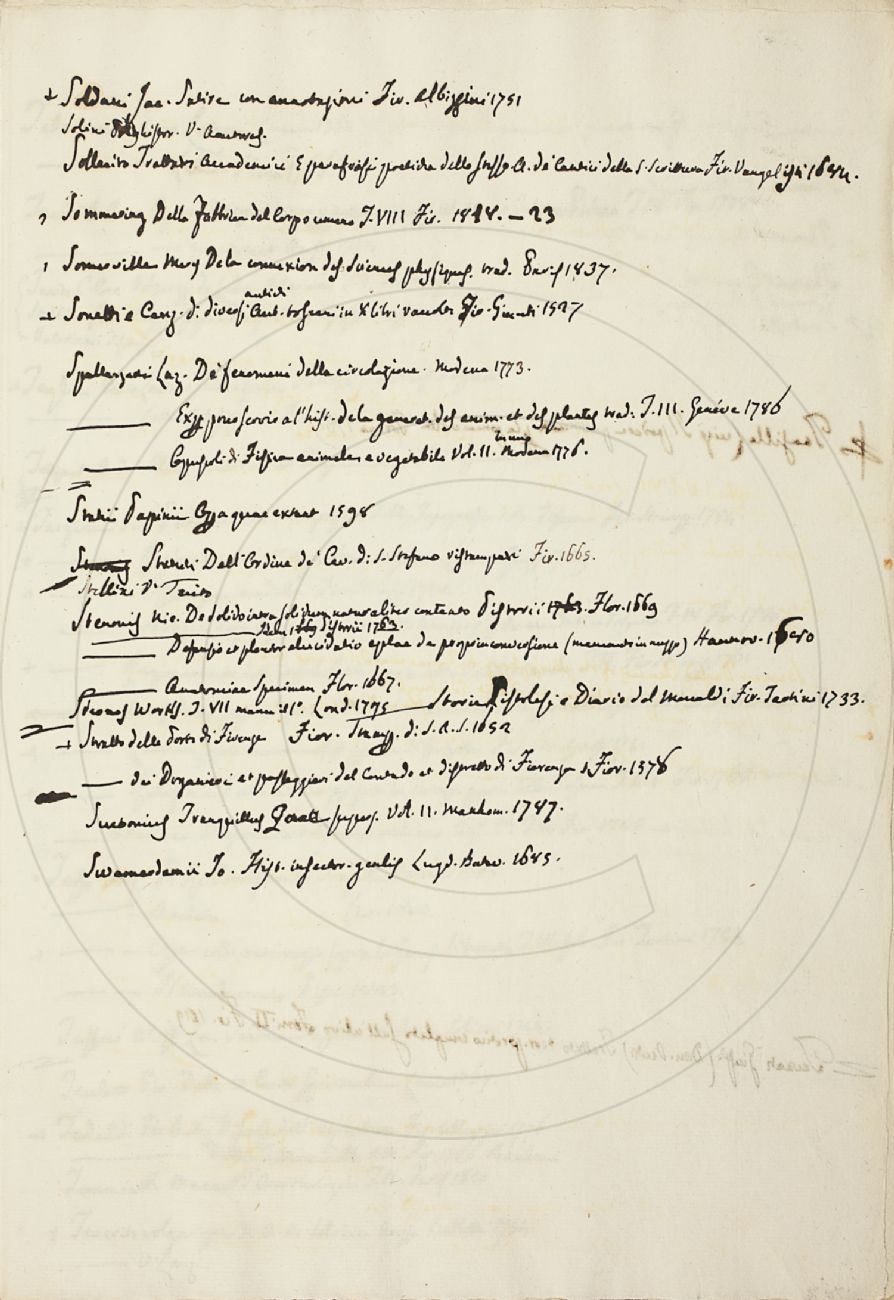 + Soldani Jac. Satire con annotazioni Fir. Albizzini 1751
Solini Polyhistor. V.
Solleciti Trattati Accademici E parafrasi poetica dello stesso A. de' Cantici della S. Scrittura Fir. Vangelisti
Sommering Della Fabbrica del Corpo umano T. VIII Fir. 1818. – 23
Somerville Mary De la connexion des Sciences physiques. trad. Paris 1837.
+ Sonetti e Canz. di diversi antichi Aut. toscani in X libri raccolte Fir. Giunti 1527
Spallanzani Laz. De' fenomeni della circolazione. Modena 1773.
——— Exp. pour servir a l'hist. de la generat. des anim. et des plantes trad. T. III. Genéve 1786
——— Opuscoli di Fisica animale e vegetabile Vol. II. Modena 1776.
Statii Papinii Opa quae extant 1598
Statuti Dell'Ordine de' Cav. di S. Stefano ristampati Fir. 1665.
Stellini V.
Stenonis Nic. De solido intra solidum naturaliter contento Flor. 1669
Pistorii 1763.
——— Defensio et plenior elucidatio de propria conversione Hannov. 1680
——— Anatomiae Specimen Flor. 1667.
Sternes Works. T. VII Lond. 1795 Storia Fir. Tartini 1733.
+ Stratto delle Porti di Firenze Fior. Stamp. di S. A. S. 1652
—— dei Doganieri et passeggieri del Contado et distretto di Fiorenza Fior. 1576
Suetonius Tranquillus Vol. II. Manhem. 1787.
Swamerdamii Jo. Hist. insector. genlis Lugd. Batav. 1685.